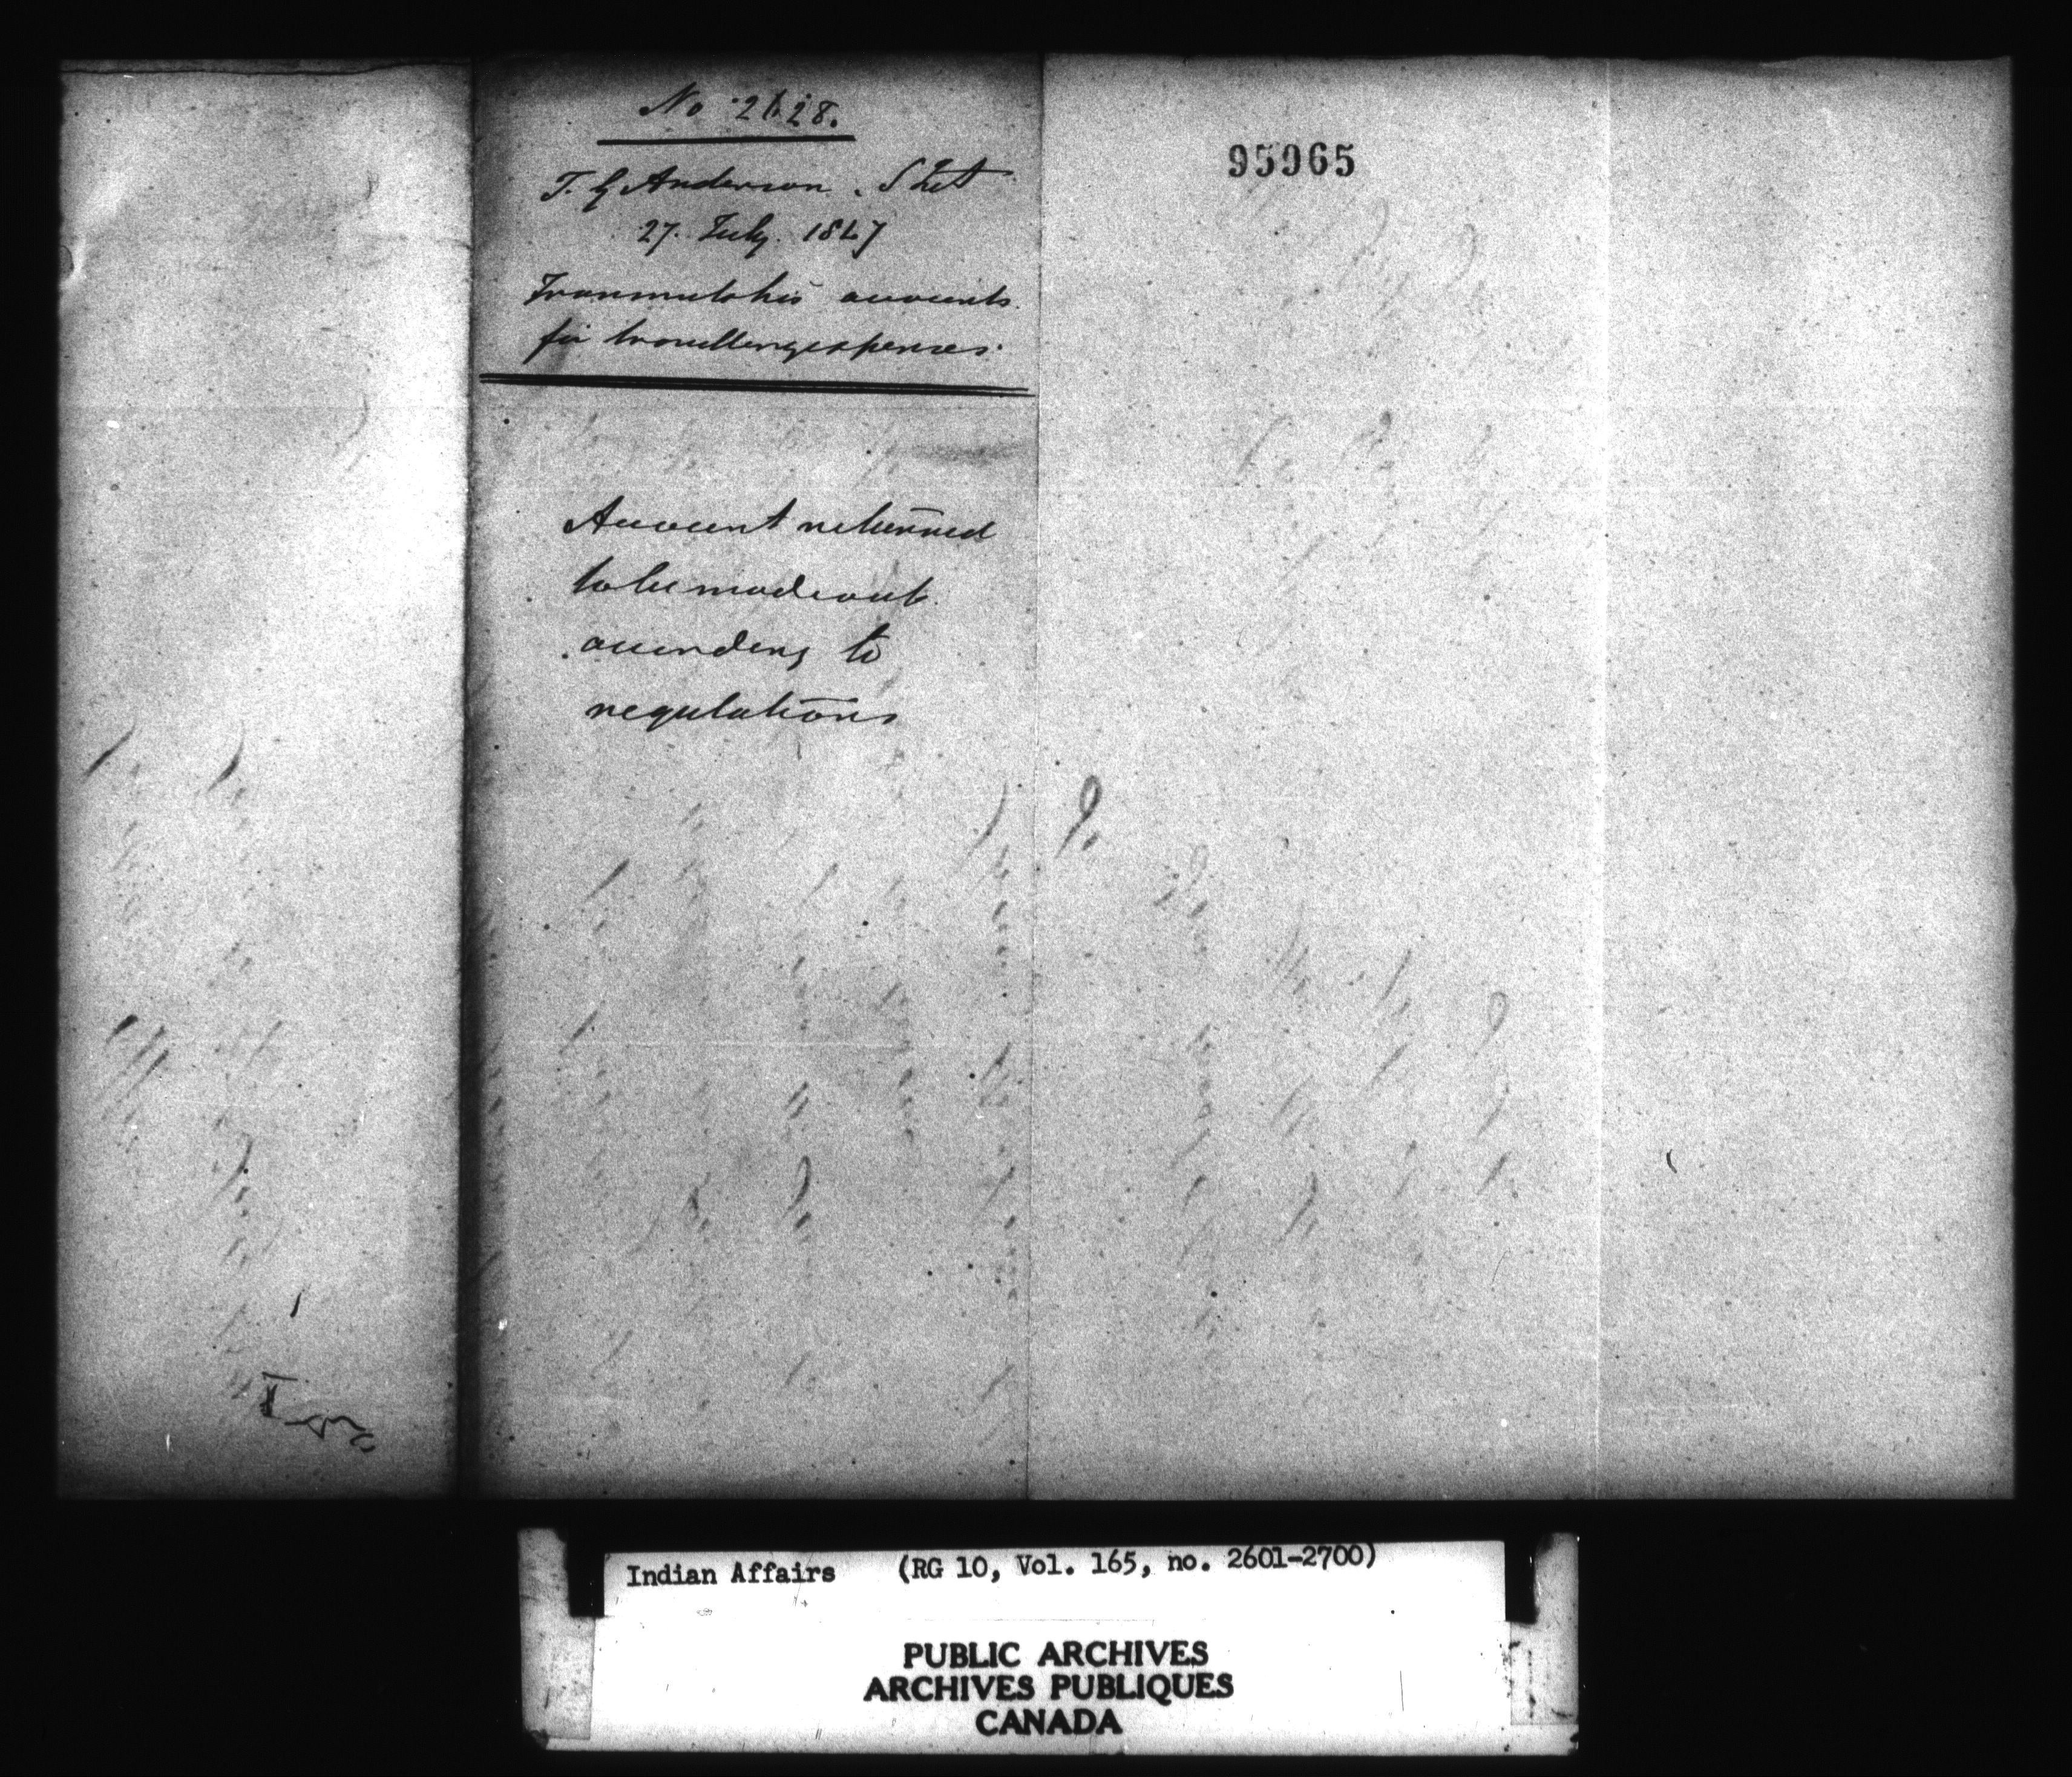 No 2628.
T. G Anderson. S Int
27. July. 1847
Transmits his accounts
for travelling expenses.
Account returned
to be made out
according to
regulations
95965
Indian Affairs (RG 10, Vol. 165, no. 2601-2700)
PUBLIC ARCHIVES
ARCHIVES PUBLIQUES
CANADA